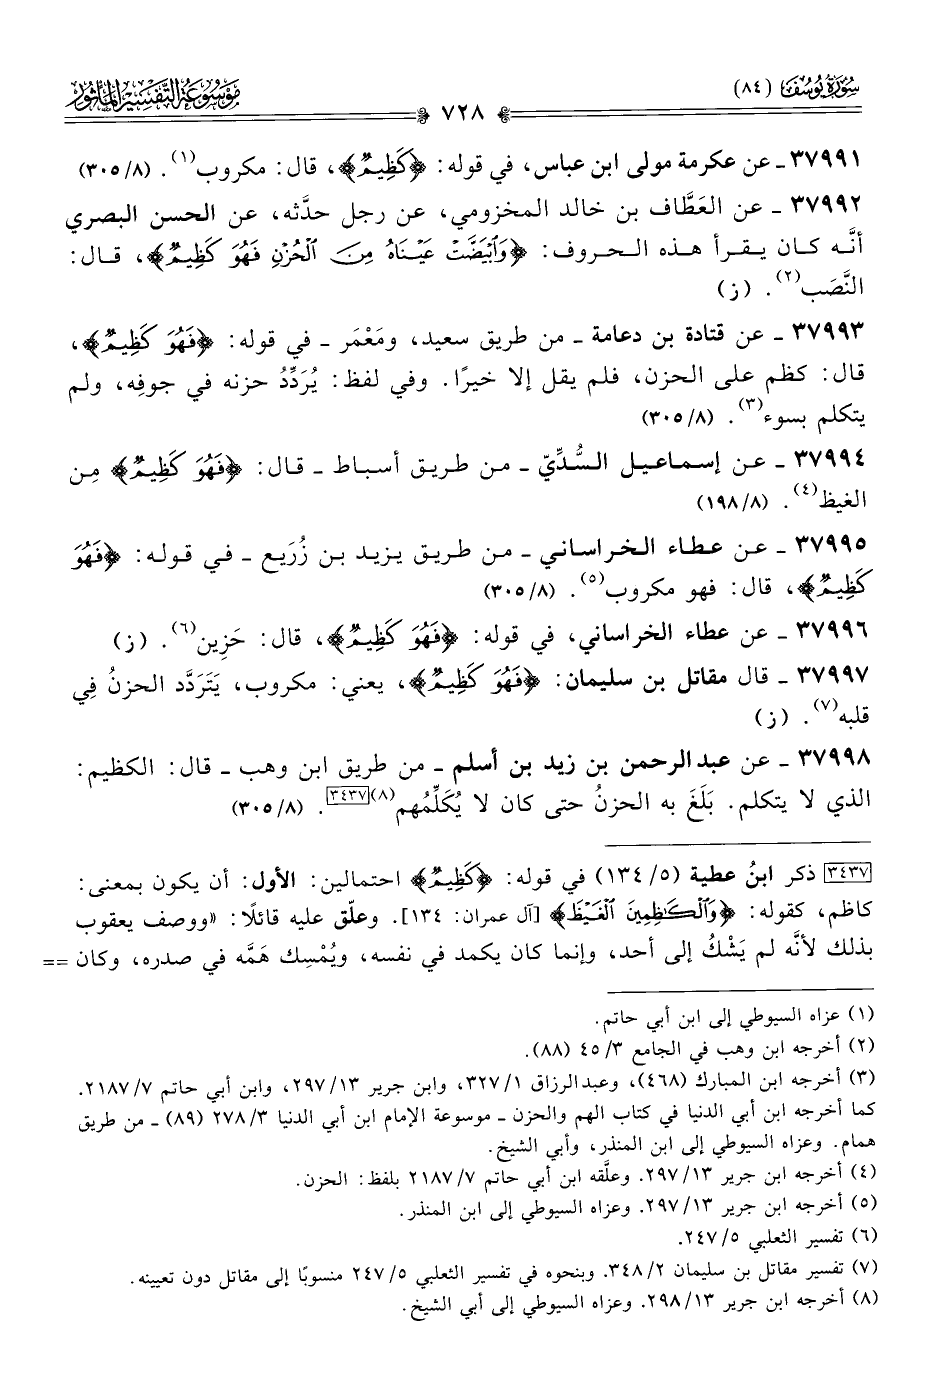 سُورَةُ يُوسُفَ (٨٤)
٧٢٨
مَوْسُوعَةُ التَّفْسِيرِ المَأْثُور
٣٧٩٩١ ـ عن عكرمة مولى ابن عباس، في قوله: ﴿كَظِيمٌ﴾، قال: مكروب(١). (٣٠٥/٨)
٣٧٩٩٢ ـ عن العَطَّاف بن خالد المخزومي، عن رجل حدَّثه، عن الحسن البصري
أنَّه كان يقرأ هذه الحروف: ﴿وَٱبْيَضَّتْ عَيْنَاهُ مِنَ ٱلْحُزْنِ فَهُوَ كَظِيمٌ﴾، قال:
النَّصَب(٢). (ز)
٣٧٩٩٣ ـ عن قتادة بن دعامة ـ من طريق سعيد، ومَعْمَر ـ في قوله: ﴿فَهُوَ كَظِيمٌ﴾،
قال: كظم على الحزن، فلم يقل إلا خيرًا. وفي لفظ: يُرَدِّدُ حزنه في جوفِه، ولم
يتكلم بسوء(٣). (٣٠٥/٨)
٣٧٩٩٤ ـ عن إسماعيل السُّدِّيّ ـ من طريق أسباط ـ قال: ﴿فَهُوَ كَظِيمٌ﴾ مِن
الغيظ(٤). (١٩٨/٨)
٣٧٩٩٥ ـ عن عطاء الخراساني ـ من طريق يزيد بن زُرَيع ـ في قوله: ﴿فَهُوَ
كَظِيمٌ﴾، قال: فهو مكروب(٥). (٣٠٥/٨)
٣٧٩٩٦ ـ عن عطاء الخراساني، في قوله: ﴿فَهُوَ كَظِيمٌ﴾، قال: حَزِين(٦). (ز)
٣٧٩٩٧ ـ قال مقاتل بن سليمان: ﴿فَهُوَ كَظِيمٌ﴾، يعني: مكروب، يَتَرَدَّد الحزنُ فِي
قلبه(٧). (ز)
٣٧٩٩٨ ـ عن عبد الرحمن بن زيد بن أسلم ـ من طريق ابن وهب ـ قال: الكظيم:
الذي لا يتكلم. بَلَغَ به الحزنُ حتى كان لا يُكَلِّمُهم(٨)[٣٤٣٧]. (٣٠٥/٨)
[٣٤٣٧] ذكر ابنُ عطية (١٣٤/٥) في قوله: ﴿كَظِيمٌ﴾ احتمالين: الأول: أن يكون بمعنى:
كاظم، كقوله: ﴿وَٱلْكَٰظِمِينَ ٱلْغَيْظَ﴾ [آل عمران: ١٣٤]. وعلّق عليه قائلًا: «ووصف يعقوب
بذلك لأنَّه لم يَشْكُ إلى أحد، وإنما كان يكمد في نفسه، ويُمْسِك هَمَّه في صدره، وكان ==
(١) عزاه السيوطي إلى ابن أبي حاتم.
(٢) أخرجه ابن وهب في الجامع ٤٥/٣ (٨٨).
(٣) أخرجه ابن المبارك (٤٦٨)، وعبدالرزاق ٣٢٧/١، وابن جرير ٢٩٧/١٣، وابن أبي حاتم ٢١٨٧/٧.
كما أخرجه ابن أبي الدنيا في كتاب الهم والحزن ـ موسوعة الإمام ابن أبي الدنيا ٢٧٨/٣ (٨٩) ـ من طريق
همام. وعزاه السيوطي إلى ابن المنذر، وأبي الشيخ.
(٤) أخرجه ابن جرير ٢٩٧/١٣. وعلَّقه ابن أبي حاتم ٢١٨٧/٧ بلفظ: الحزن.
(٥) أخرجه ابن جرير ٢٩٧/١٣. وعزاه السيوطي إلى ابن المنذر.
(٦) تفسير الثعلبي ٢٤٧/٥.
(٧) تفسير مقاتل بن سليمان ٣٤٨/٢. وبنحوه في تفسير الثعلبي ٢٤٧/٥ منسوبًا إلى مقاتل دون تعيينه.
(٨) أخرجه ابن جرير ٢٩٨/١٣. وعزاه السيوطي إلى أبي الشيخ.